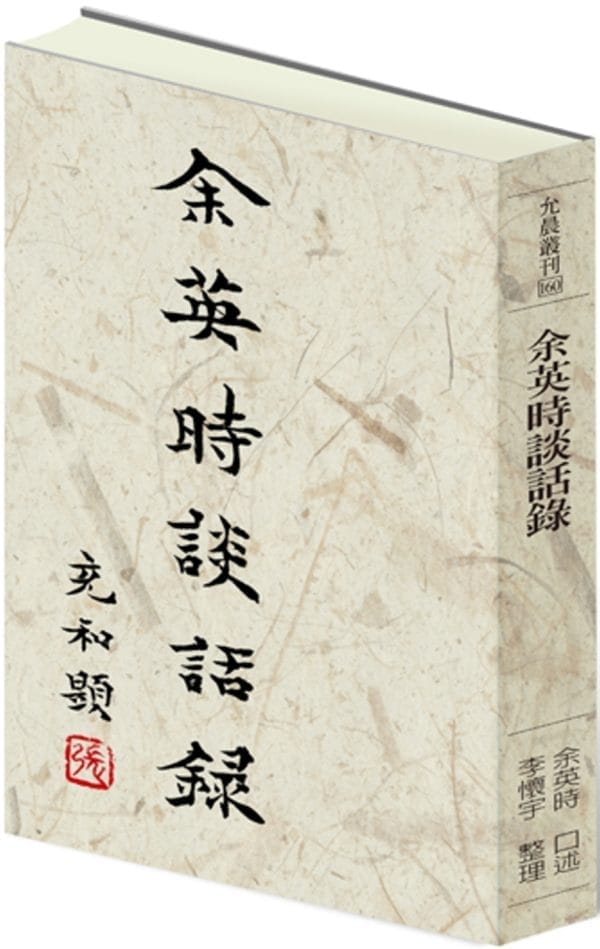 余英時談話録
充和題
張
允晨叢刊
160
余英時談話錄
余英時 口述
李懷宇 整理